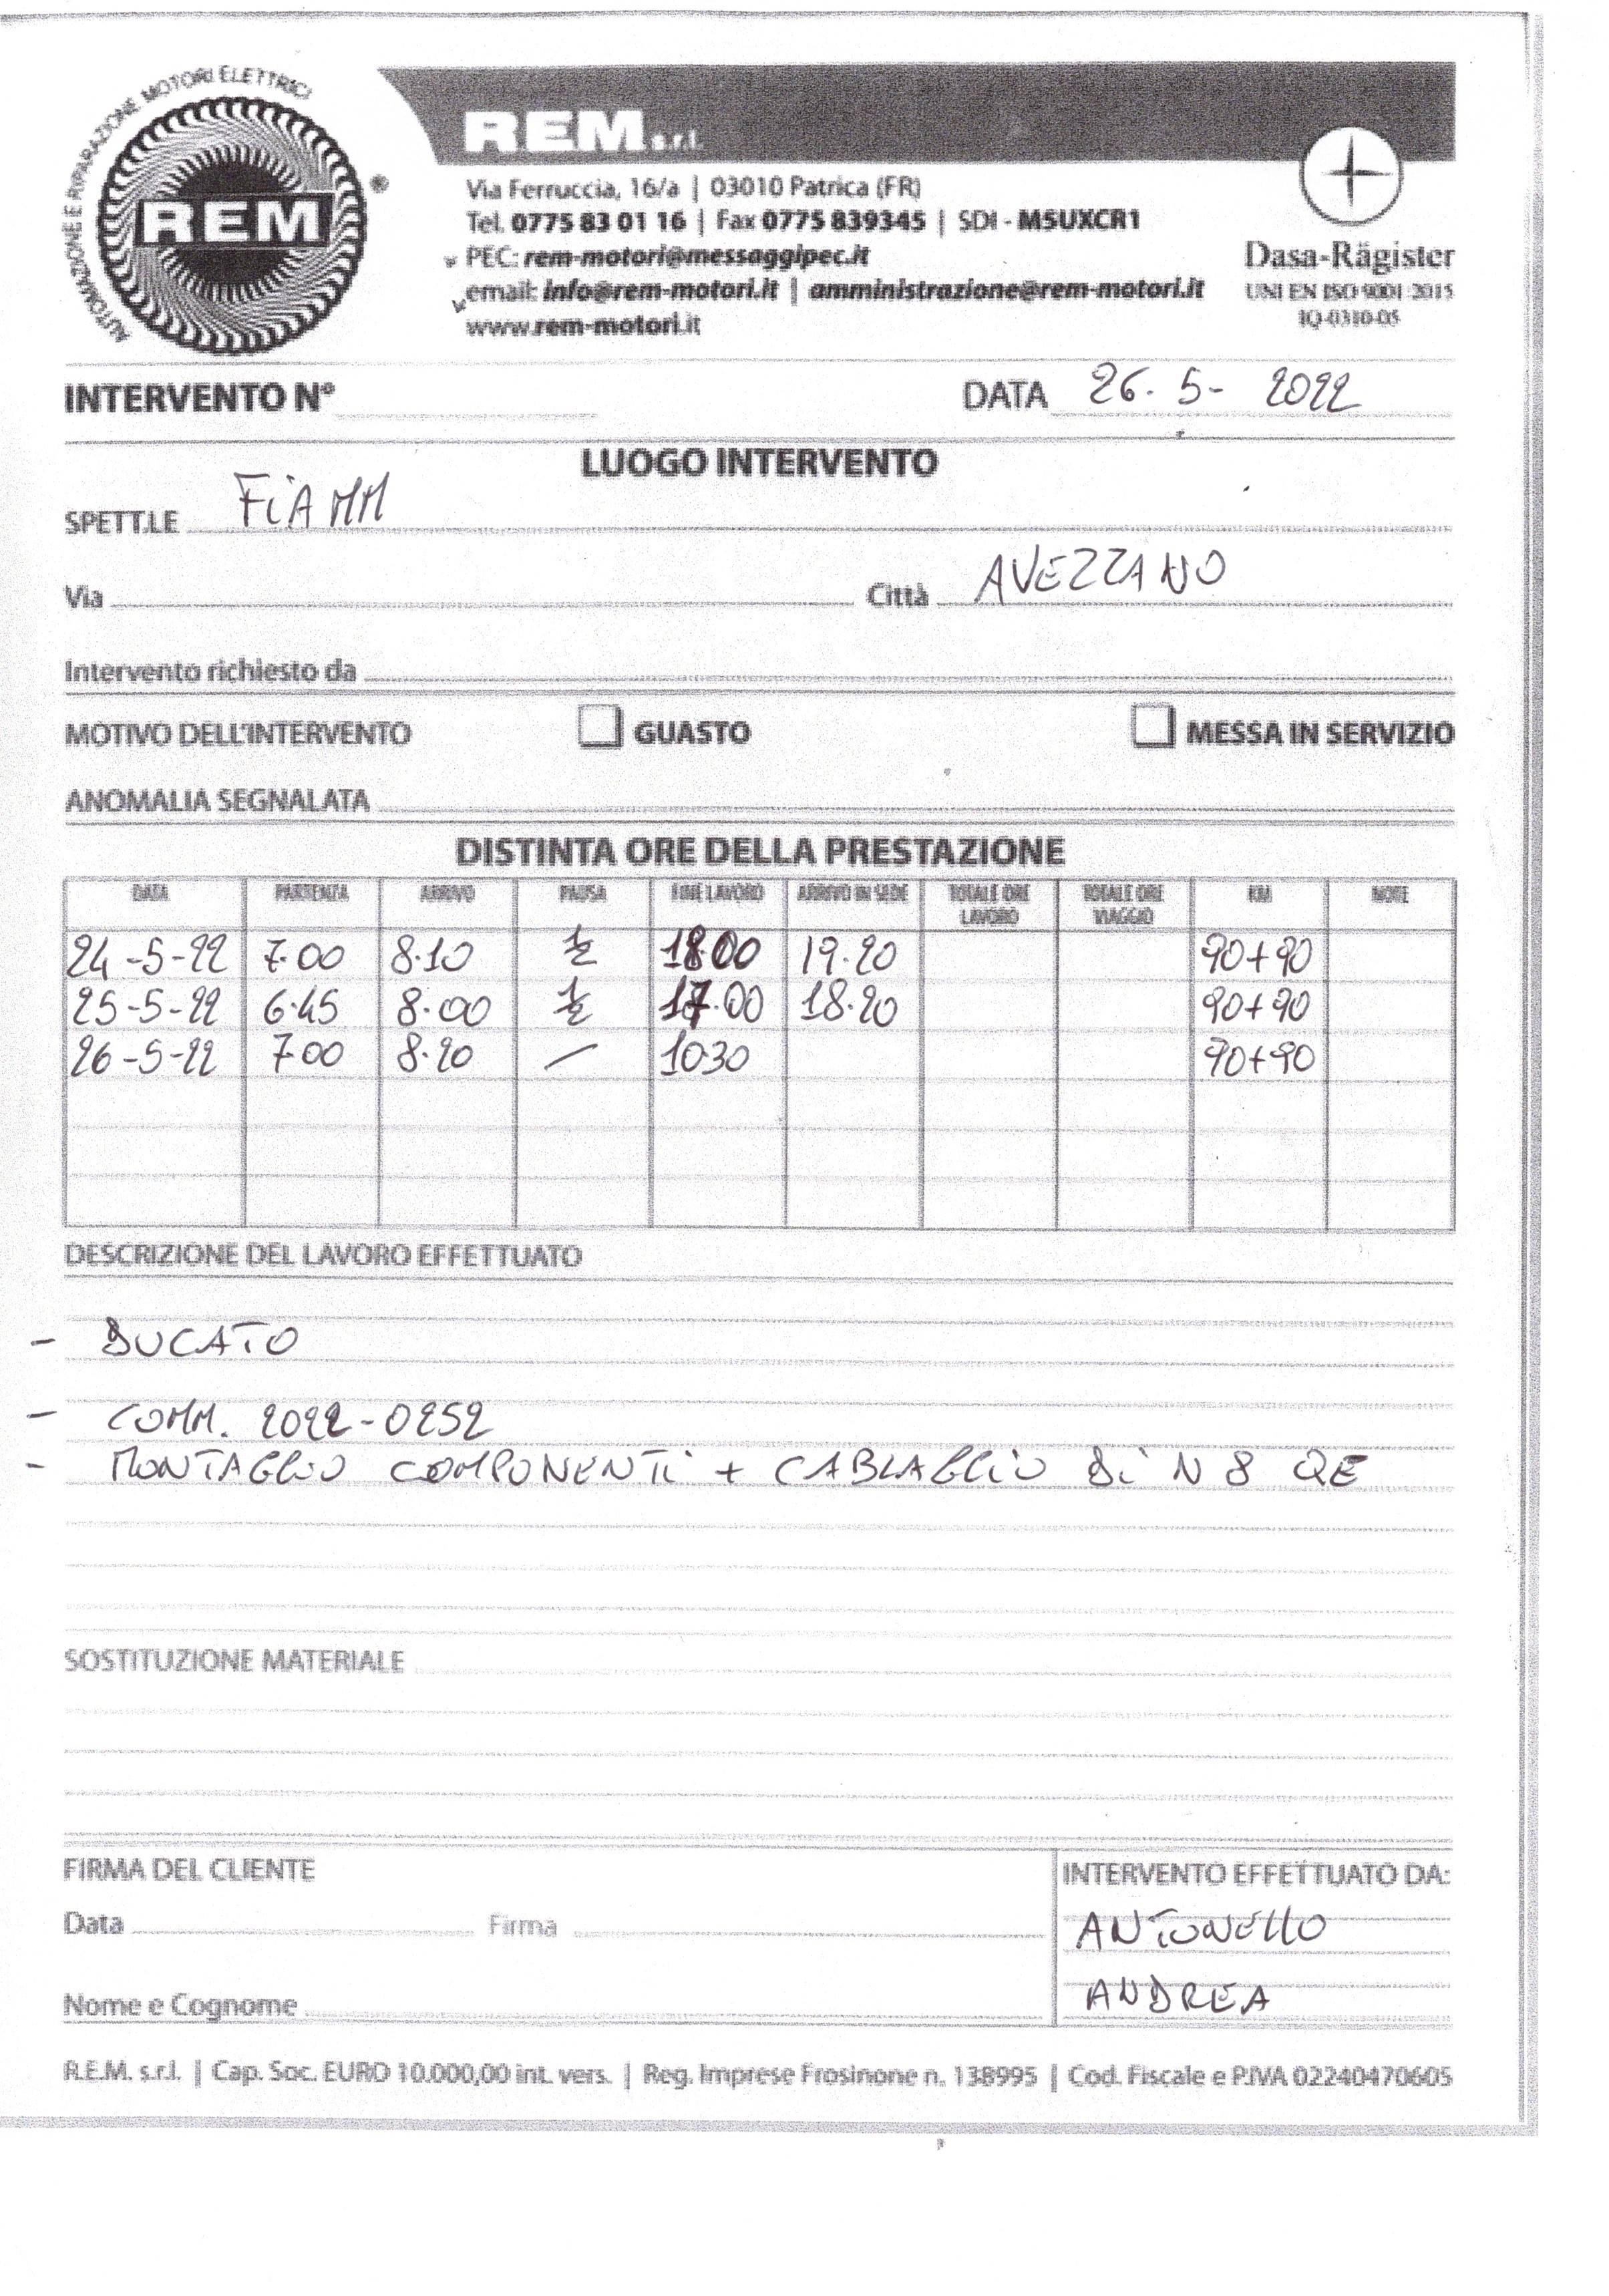 AUTOMAZIONE E RIPARAZIONE MOTORI ELETTRICI
REM ®
REM s.r.l.
Via Ferruccia, 16/a | 03010 Patrica (FR)
Tel. 0775 83 01 16 | Fax 0775 839345 | SDI - M5UXCR1
PEC: rem-motori@messaggipec.it
email: info@rem-motori.it | amministrazione@rem-motori.it
www.rem-motori.it
Dasa-Rägister
UNI EN ISO 9001:2015
IQ-0310-05
INTERVENTO N° DATA 26. 5- 2022
LUOGO INTERVENTO
SPETT.LE FiAMM
Via Città AVEZZANO
Intervento richiesto da
MOTIVO DELL'INTERVENTO GUASTO MESSA IN SERVIZIO
ANOMALIA SEGNALATA
DISTINTA ORE DELLA PRESTAZIONE
DATA PARTENZA ARRIVO PAUSA FINE LAVORO ARRIVO IN SEDE TOTALE ORE LAVORO TOTALE ORE VIAGGIO KM NOTE
24-5-22 7.00 8.10 ½ 18.00 19.20 90+90
25-5-22 6.45 8.00 ½ 17.00 18.20 90+90
26-5-22 7.00 8.20 — 10.30 90+90
DESCRIZIONE DEL LAVORO EFFETTUATO
- DUCATO
- COMM. 2022-0252
- MONTAGGIO COMPONENTi + CABLAGGIO Di N 8 QE
SOSTITUZIONE MATERIALE
FIRMA DEL CLIENTE
Data Firma
Nome e Cognome
INTERVENTO EFFETTUATO DA:
ANTONELLO
ANDREA
R.E.M. s.r.l. | Cap. Soc. EURO 10.000,00 int. vers. | Reg. Imprese Frosinone n. 138995 | Cod. Fiscale e P.IVA 02240470605